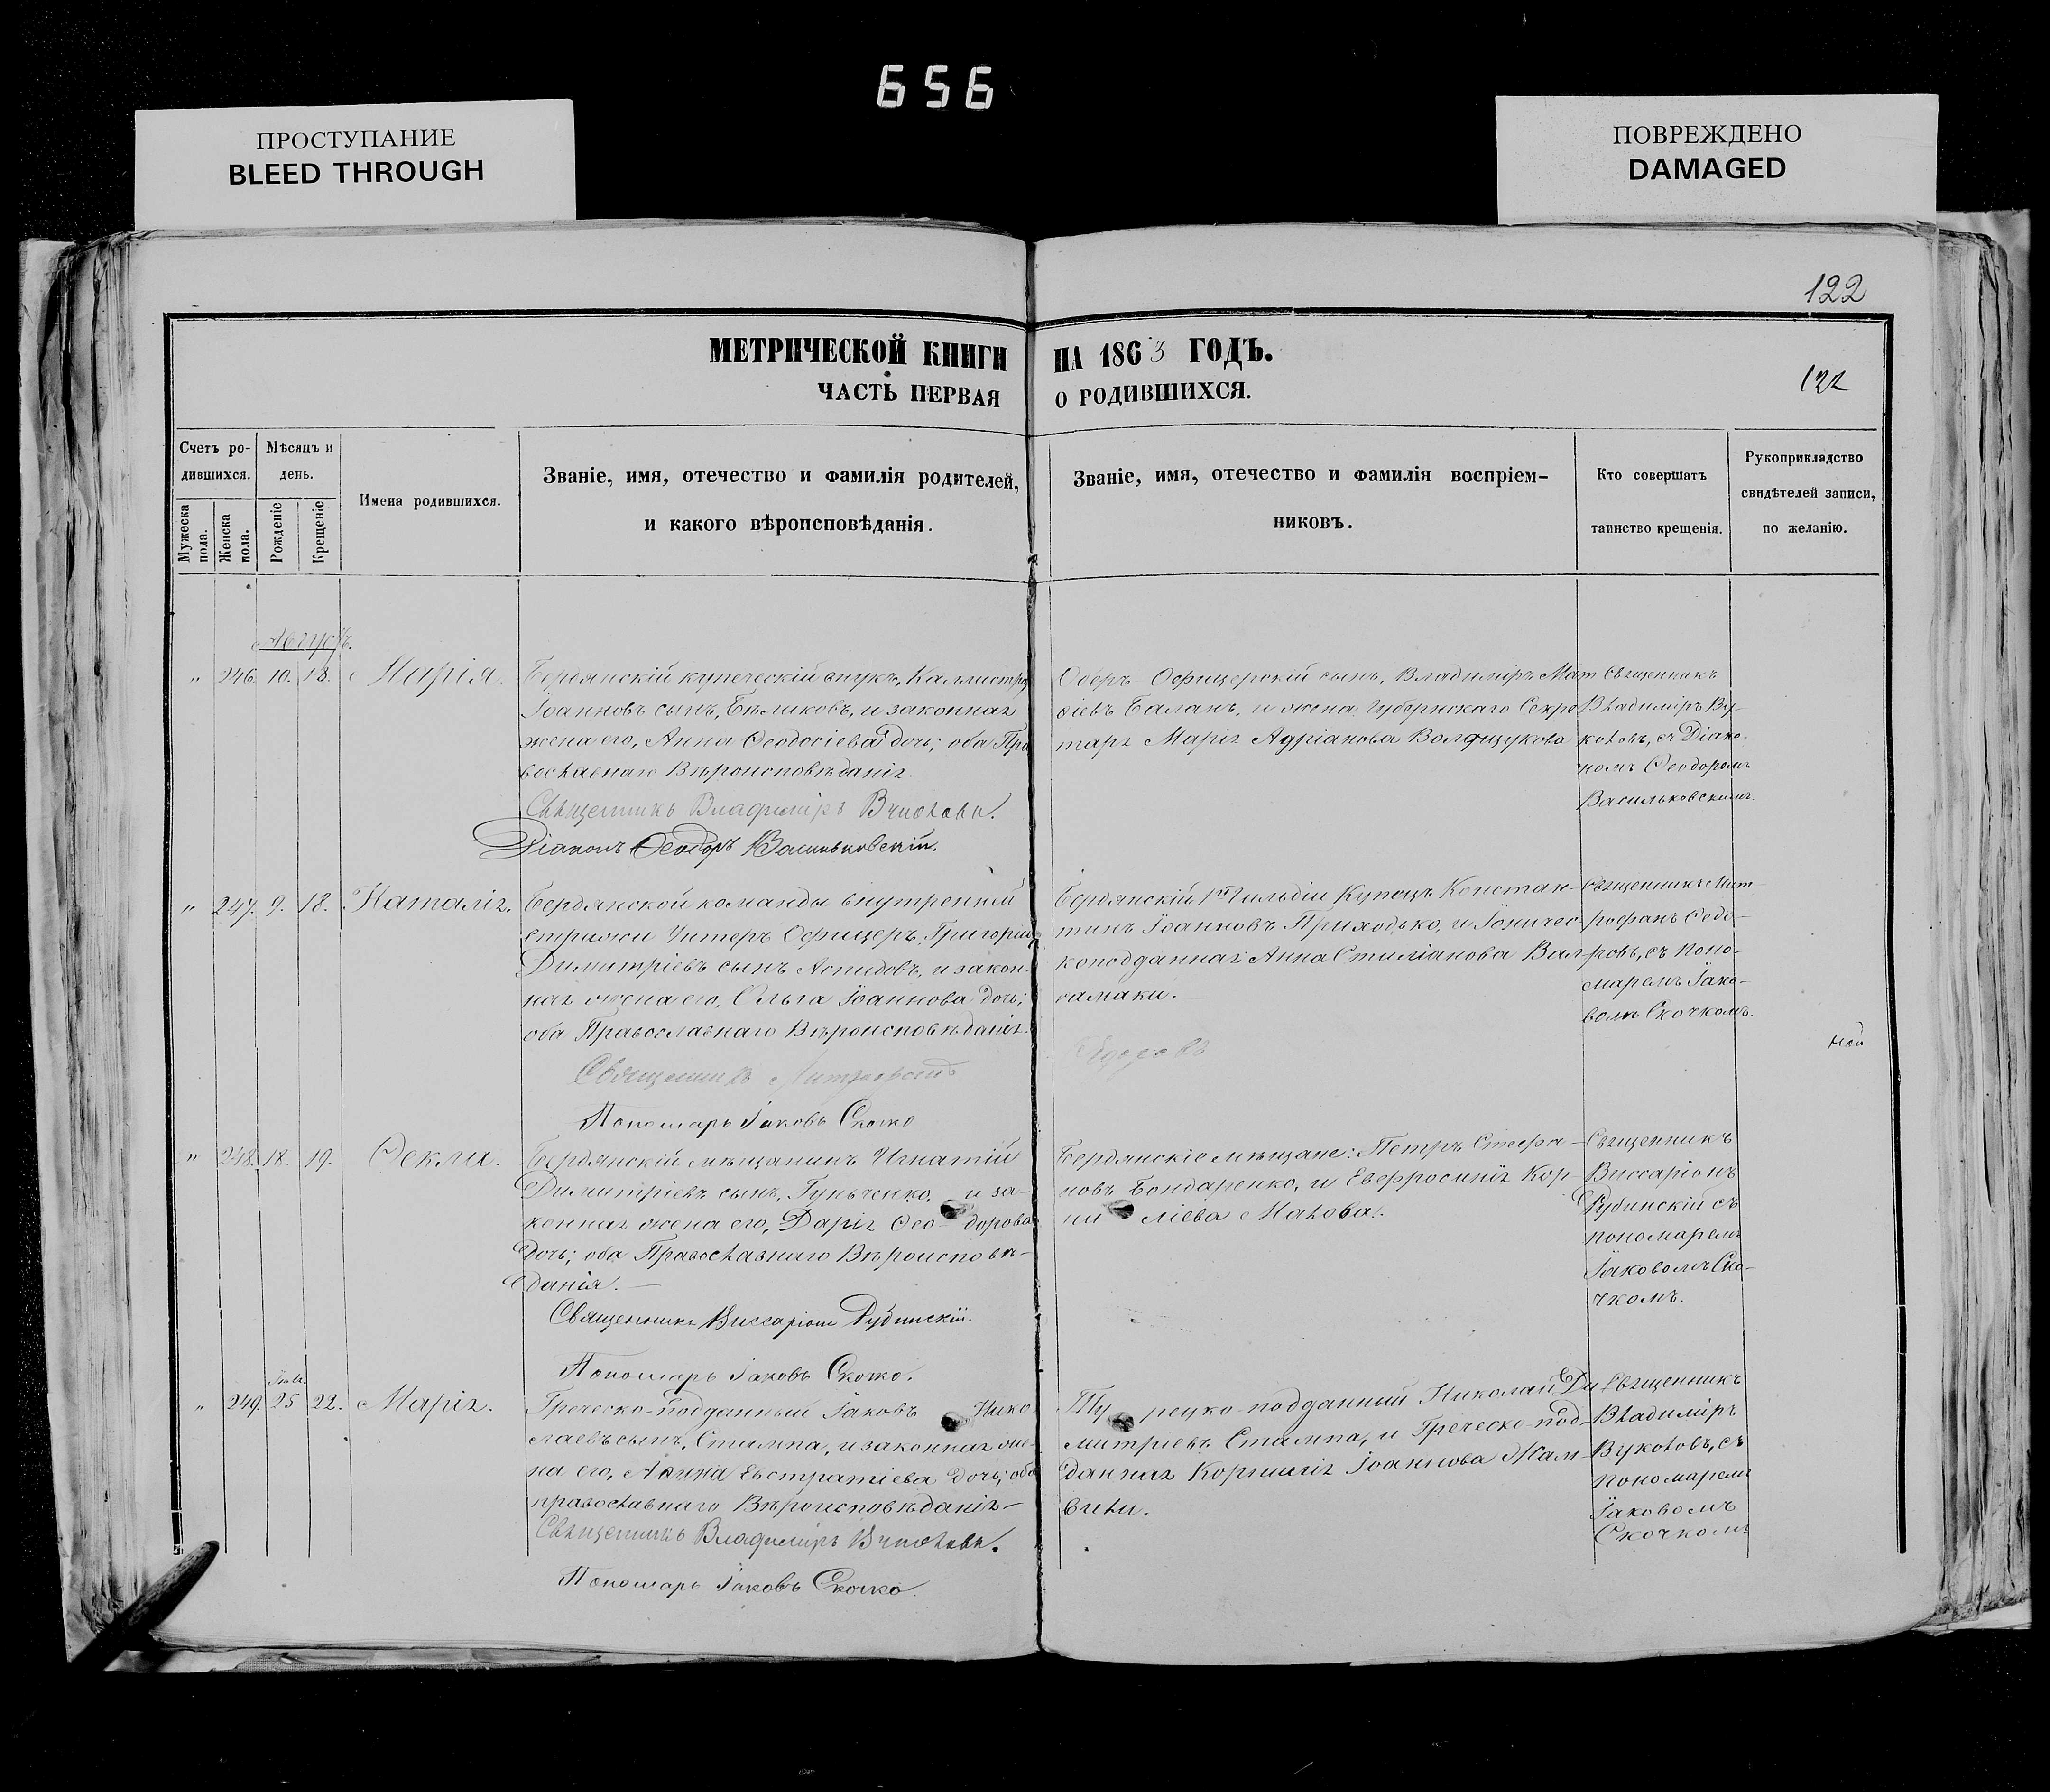 656
ПРОСТУПАНИЕ
BLEED THROUGH
ПОВРЕЖДЕНО
DAMAGED
122
МЕТРИЧЕСКОЙ КНИГИ НА 1863 ГОДЪ.
ЧАСТЬ ПЕРВАЯ О РОДИВШИХСЯ.
122
Счетъ ро-
дившихся.
Мужеска пола.
Женска пола.
Мѣсяцъ и
день.
Рожденіе
Крещеніе
Имена родившихся.
Званіе, имя, отечество и фамилія родителей,
и какого вѣроисповѣданія.
Званіе, имя, отечество и фамилія воспріем-
никовъ.
Кто совершатъ
таинство крещенія.
Рукоприкладство
свидѣтелей записи,
по желанію.
Августъ.
" 246. 10. 18. Марія.
Бердянскій купеческій внукъ, Каллистратъ
Іоанновъ сынъ, Бѣликовъ, и законная
жена его, Анна Ѳеодосіева дочь; оба Пра
вославнаго Вѣроисповѣданія.
Священникъ Владиміръ
Діаконъ Ѳеодоръ Васильковскій.
Оберъ Офицерскій сынъ, Владиміръ Мат
ѳіевъ Баланъ, и жена Губернскаго Секре
таря Марія Адріанова
Священникъ
Владиміръ Ву-
коловъ, съ Діако-
номъ Ѳеодоромъ
Васильковскимъ.
" 247. 9. 18. Наталія.
Бердянской команды внутренней
стражи Унтеръ Офицеръ, Григорій
Димитріевъ сынъ и закон-
ная жена его, Ольга Іоаннова дочь;
оба Православнаго Вѣроисповѣданія.
Священникъ Митрофанъ Ѳедоровъ
Пономарь Іаковъ Скочко
Бердянскій 1й Гильдіи Купецъ Констан-
тинъ Іоанновъ Приходько, и Іоничес-
коподданная Анна Стиліанова Вал-
самаки.
Священникъ Мит-
рофанъ Ѳедо-
ровъ, съ Поно-
маремъ Іако-
вомъ Скочкомъ.
" 248. 18. 19. Ѳекла.
Бердянскій мѣщанинъ Игнатій
Димитріевъ сынъ, Гунченко, и за-
конная жена его, Дарія Ѳео- дорова
дочь; оба Православнаго Вѣроисповѣ-
данія. —
Священникъ Виссаріонъ Дубинскій.
Пономарь Іаковъ Скочко.
Бердянскіе мѣщане: Петръ Стефа-
новъ Бондаренко, и Евфросинія Кор-
ни ліева Махова.
Священникъ
Виссаріонъ
Дубинскій съ
пономаремъ
Іаковомъ Ско-
чкомъ.
" 249. 25 22. Марія.
Греческо-подданный Іаковъ Нико
лаевъ сынъ, Стампа, и законная же-
на его, Евстратіева дочь; оба
православнаго Вѣроисповѣданія —
Священникъ Владиміръ
Пономарь Іаковъ Скочко.
Ту рецко-подданный Николай Ди
митріевъ Стампа, и Греческо-под-
данная Корнилія Іоаннова
Священникъ
Владиміръ
Вуколовъ, съ
пономаремъ
Іаковомъ
Скочкомъ